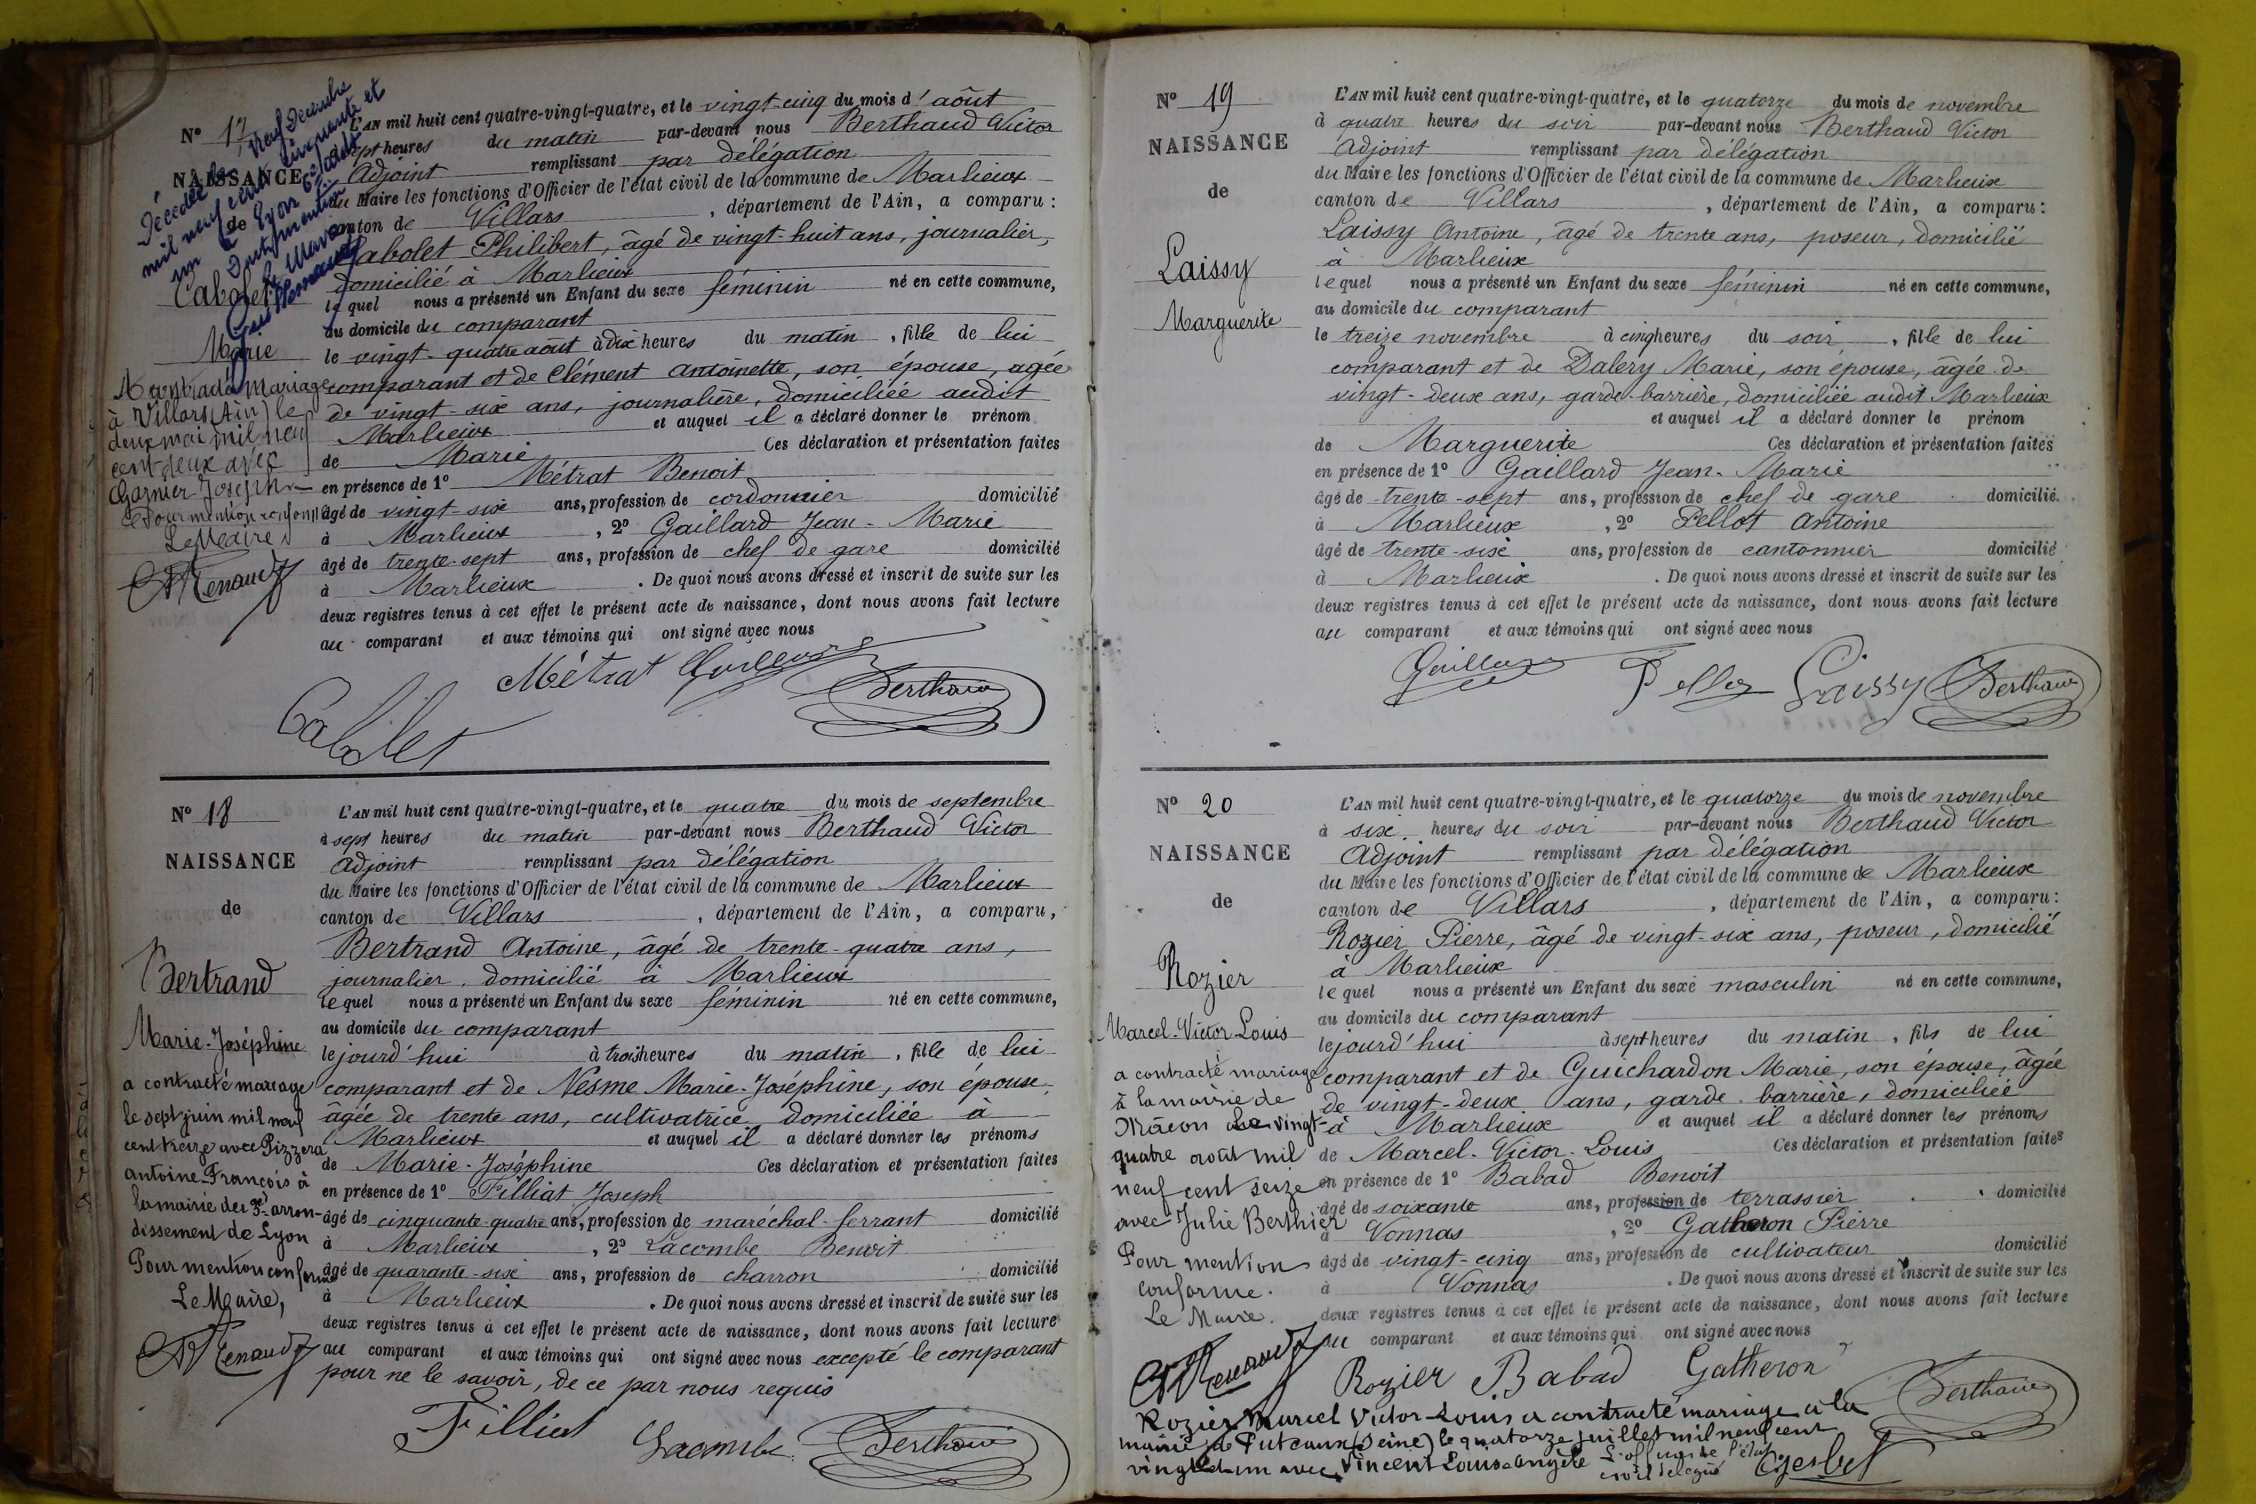 Nº 17
NAISSANCE
de
Cabolet
Marie
Décédée le neuf décembre
mil neuf cent cinquante et
un à Lyon 6e
Le Maire
A contracté Mariage
à Villars (Ain) le
deux mai mil neuf
cent deux avec
Garnier Joseph
Pour mention conforme
Le Maire
A Renaud
L'AN mil huit cent quatre-vingt-quatre, et le vingt-cinq du mois d'août
à sept heures du matin par-devant nous Berthaud Victor
Adjoint remplissant par délégation
du Maire les fonctions d'Officier de l'état civil de la commune de Marlieux
canton de Villars, département de l'Ain, a comparu :
Cabolet Philibert, âgé de vingt-huit ans, journalier,
domicilié à Marlieux
lequel nous a présenté un Enfant du sexe féminin né en cette commune,
au domicile du comparant
le vingt-quatre août à dix heures du matin, fille de lui
comparant et de Clément Antoinette, son épouse, agée
de vingt-six ans, journalière, domiciliée audit
Marlieux et auquel il a déclaré donner le prénom
de Marie Ces déclaration et présentation faites
en présence de 1º Métrat Benoit
âgé de vingt six ans, profession de cordonnier domicilié
à Marlieux, 2º Gaillard Jean-Marie
âgé de trente-sept ans, profession de chef de gare domicilié
à Marlieux. De quoi nous avons dressé et inscrit de suite sur les
deux registres tenus à cet effet le présent acte de naissance, dont nous avons fait lecture
au comparant et aux témoins qui ont signé avec nous
Métrat Gaillard Berthaud
Cabolet
Nº 18
NAISSANCE
de
Bertrand
Marie-Joséphine
a contracté mariage
le sept juin mil neuf
cent treize avec Pizzera
Antoine François à
la mairie du 3e arron-
dissement de Lyon
Pour mention conforme
Le Maire,
A Renaud
L'AN mil huit cent quatre-vingt-quatre, et le quatre du mois de septembre
à sept heures du matin par-devant nous Berthaud Victor
Adjoint remplissant par délégation
du Maire les fonctions d'Officier de l'état civil de la commune de Marlieux
canton de Villars, département de l'Ain, a comparu,
Bertrand Antoine, âgé de trente-quatre ans,
journalier, domicilié à Marlieux
lequel nous a présenté un Enfant du sexe féminin né en cette commune,
au domicile du comparant
le jourd'hui à trois heures du matin, fille de lui
comparant et de Nesme Marie-Joséphine, son épouse,
âgée de trente ans, cultivatrice domiciliée à
Marlieux et auquel il a déclaré donner les prénoms
de Marie-Joséphine Ces déclaration et présentation faites
en présence de 1º Filliat Joseph
âgé de cinquante-quatre ans, profession de maréchal-ferrant domicilié
à Marlieux, 2º Lacombe Benoit
âgé de quarante-six ans, profession de charron domicilié
à Marlieux. De quoi nous avons dressé et inscrit de suite sur les
deux registres tenus à cet effet le présent acte de naissance, dont nous avons fait lecture
au comparant et aux témoins qui ont signé avec nous excepté le comparant
pour ne le savoir, de ce par nous requis
Filliat Lacombe Berthaud
Nº 19
NAISSANCE
de
Laissy
Marguerite
L'AN mil huit cent quatre-vingt-quatre, et le quatorze du mois de novembre
à quatre heures du soir par-devant nous Berthaud Victor
Adjoint remplissant par délégation
du Maire les fonctions d'Officier de l'état civil de la commune de Marlieux
canton de Villars, département de l'Ain, a comparu :
Laissy Antoine, âgé de trente ans, poseur, domicilié
à Marlieux
lequel nous a présenté un Enfant du sexe féminin né en cette commune,
au domicile du comparant
le treize novembre à cinq heures du soir, fille de lui
comparant et de Dalery Marie, son épouse, âgée de
vingt-deux ans, garde-barrière, domiciliée audit Marlieux
et auquel il a déclaré donner le prénom
de Marguerite Ces déclaration et présentation faites
en présence de 1º Gaillard Jean-Marie
âgé de trente-sept ans, profession de chef de gare domicilié
à Marlieux, 2º Pellot Antoine
âgé de trente-six ans, profession de cantonnier domicilié
à Marlieux. De quoi nous avons dressé et inscrit de suite sur les
deux registres tenus à cet effet le présent acte de naissance, dont nous avons fait lecture
au comparant et aux témoins qui ont signé avec nous
Gaillard Pellot Laissy Berthaud
Nº 20
NAISSANCE
de
Rozier
Marcel-Victor-Louis
a contracté mariage
à la mairie de
Mâcon le vingt-
quatre août mil
neuf cent seize
avec Julie Berthier
Pour mention
conforme.
Le Maire.
A Renaud
L'AN mil huit cent quatre-vingt-quatre, et le quatorze du mois de novembre
à six heures du soir par-devant nous Berthaud Victor
Adjoint remplissant par délégation
du Maire les fonctions d'Officier de l'état civil de la commune de Marlieux
canton de Villars, département de l'Ain, a comparu :
Rozier Pierre, âgé de vingt-six ans, poseur, domicilié
à Marlieux
lequel nous a présenté un Enfant du sexe masculin né en cette commune,
au domicile du comparant
le jourd'hui à sept heures du matin, fils de lui
comparant et de Guichardon Marie, son épouse, âgée
de vingt-deux ans, garde-barrière, domiciliée
à Marlieux et auquel il a déclaré donner les prénoms
de Marcel-Victor-Louis Ces déclaration et présentation faites
en présence de 1º Babad Benoit
âgé de soixante ans, profession de terrassier domicilié
à Vonnas, 2º Gatheron Pierre
âgé de vingt-cinq ans, profession de cultivateur domicilié
à Vonnas. De quoi nous avons dressé et inscrit de suite sur les
deux registres tenus à cet effet le présent acte de naissance, dont nous avons fait lecture
au comparant et aux témoins qui ont signé avec nous
Rozier Babad Gatheron Berthaud
Rozier Marcel Victor-Louis a contracté mariage à la
mairie de Puteaux (Seine) le quatorze juillet mil neuf cent
vingt et un avec Vincent Louise Angèle L'officier de l'état
civil délégué